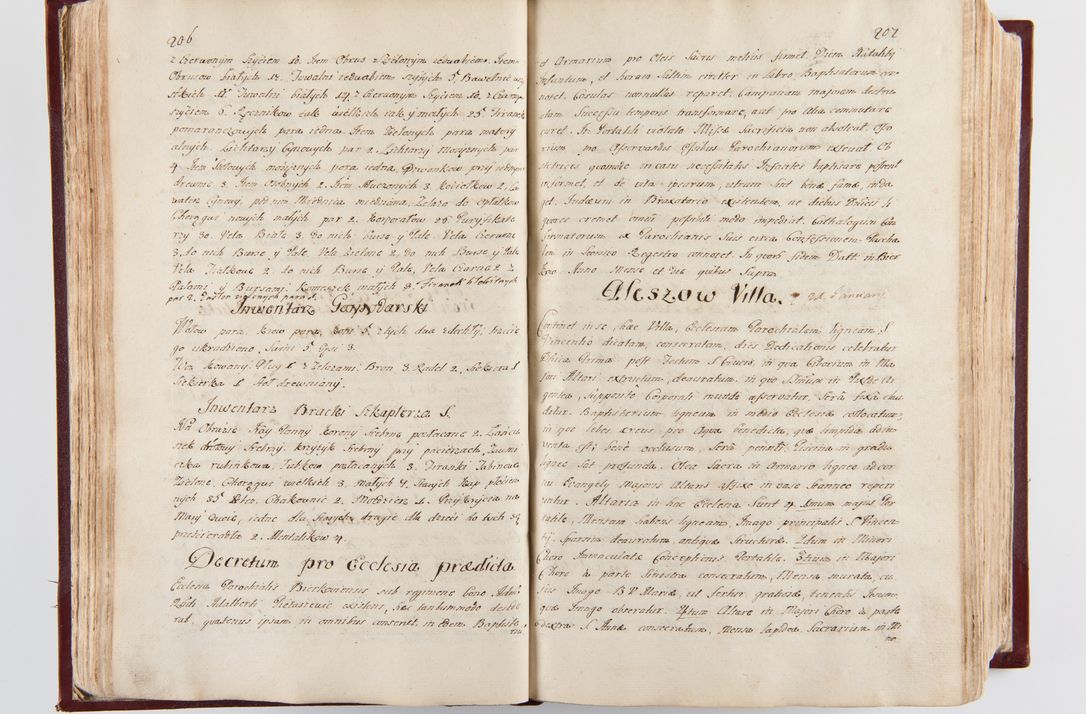 206
z Czerwonym Szyciem 10. Item Obrus z Zielonym iedwabiem. Item
Obrusow białych 12. Tuwalni iedwabiem szytych 5. Bawełnicą
Tuwalni białych 14. z Czerwonym Szyciem 10. z Czarnym
szyciem 6. Ręcznikow tak wielkich iak y małych 25. Firanek
pomaranczowych para iedna. Item Zielonych para matery
alnych. Lichtarzy Cynowych par 2. Lichtarzy Mosiężnych par
4. Item mosiężnych para iedna, Dzwonkow przy iednym
drewnie 3. Item Osobnych 2. Item 3. Kociełkow 2.
cynowy, pod nim Miednica miedziana, Zelazo do opłatkow
Chorągwi nowych małych par 2. Korporałow 22. Puryfikate
rzy 30. Vela Białe 3. do nich Burse y Pale. Vela Czerwone
3. do nich Burse, y Pale. Vela Zielone 2. do nich Burse y Pale
Vela Fiałkowe 2. do nich Burse y Pale, Vela Czarne 2. z
Palami y Bursami. Komeszek małych 3. Firanek
par 2. zielonych para 1.
Inwentarz Gospodarski
Wołow para. Krow para, koni 5. z tych dwa zdechły, trzecie
go ukradziono. Swini 5. Gęsi 3.
Woz kowany. Pług 1. z Zelezami. Bron 3. Radeł 2. Siekiera 1.
Siekierka 1. Stoł drewniany.
Inwentarz Bracki Szkaplerza S.
Na Obrazie Nay: Panny korony srebrne pozłacane 2. Łancu
szek drotowy srebrny. krzyżyk srebrny przy pacierzach,
rubinkowa, Tabliczek pozłacanych 3. Firanki Tabinowe
Zielone. Chorągwi wielkich 3. małych 4. Starych Kap płocien
nych 35. 2. 1. Przykrycia na
Mary dwoie, iedne dla Starych drugie dla dzieci do tych
przescieradła 2. Mentalikow 4.
Decretum pro Ecclesia prædicta
Ecclesia Parochialis Bierkoviensis sub regimine bono Adm:
Rndi Adalberti Pietasiewic existens, hæc tantummodo deside
rat, quatenus ipsam in omnibus conservet. in eadem Baptiste
rio
207
et Armarium pro Oleis Sacris melius firmet. Diem Natality
Infantum, et horam saltim circiter in libro Baptisatorum con
notet. Casulas nonnullas reparet. Campanam majorem destru
ctam Successu temporis transformare, aut pro alia commutare
curet. In Portatili violato Missæ Sacrificia non absolvat.
rium pro Osservandis Ossibus Parochianorum extruat. Ob
stetrices quomodo in casu necessitatis Infantes baptisare possent
informet, et de vita ipsarum, utrum sint bonæ famæ, inda
get. Judæum in Braxatorio existentem, ne diebus Dnicis li
quores cremet omni possibili modo impediat. Cathalogum Con
formatorum ex Parochianis Suis circa Confessionem Pascha
lem in seorsivo Regestro connotet. In quorum fidem Datt: in Bier
kow Anno Mense et Die quibus Supra.
Aleszow Villa. 21. January.
Continet in se, hæc Villa, Ecclesiam Parochialem, ligneam S.
Vincentio dicatam, consecratam, dies Dedicationis celebratur
Dnica Prima post Festum S. Crucis, in qua Ciborium in Ma
jori Altari extructum, deauratum, in quo SSmum in Pyxide Ar
gentea, supposito Corporali mundo asservatur. Sera fixa clau
ditur. Baptisterium ligneum in medio Ecclesiæ collocatum,
in quo lebes æreus, pro Aqua benedicta, quæ limpida adin
venta est; bene occlusum, sera penditi. Piscina in gradu
ligneo sat profunda. Olea Sacra in Armario ligneo ad cor
nu Evangely Majoris Altaris affixo in vase stanneo reperi
untur. Altaria in hac Ecclesia sunt 4. 1mum majus Por
tatile, Mensam habens ligneam, Imago principalis S. Vincen
ty. sparsim deauratum, antiquæ structuræ. 2dum in Minori
Choro Immaculatæ Conceptionis Portatile. 3tium in Majori
Choro à parte sinistra consecratum, Mensa murata, cu
jus Imago B.V. Mariæ, ut fertur gratiosa, tenentis Jesum,
quæ Imago oberatur. 4tum Altare in Majori Choro à parte
dextra S. Annæ consecratum, mensa lapidea. Sacrarium in Mi
no